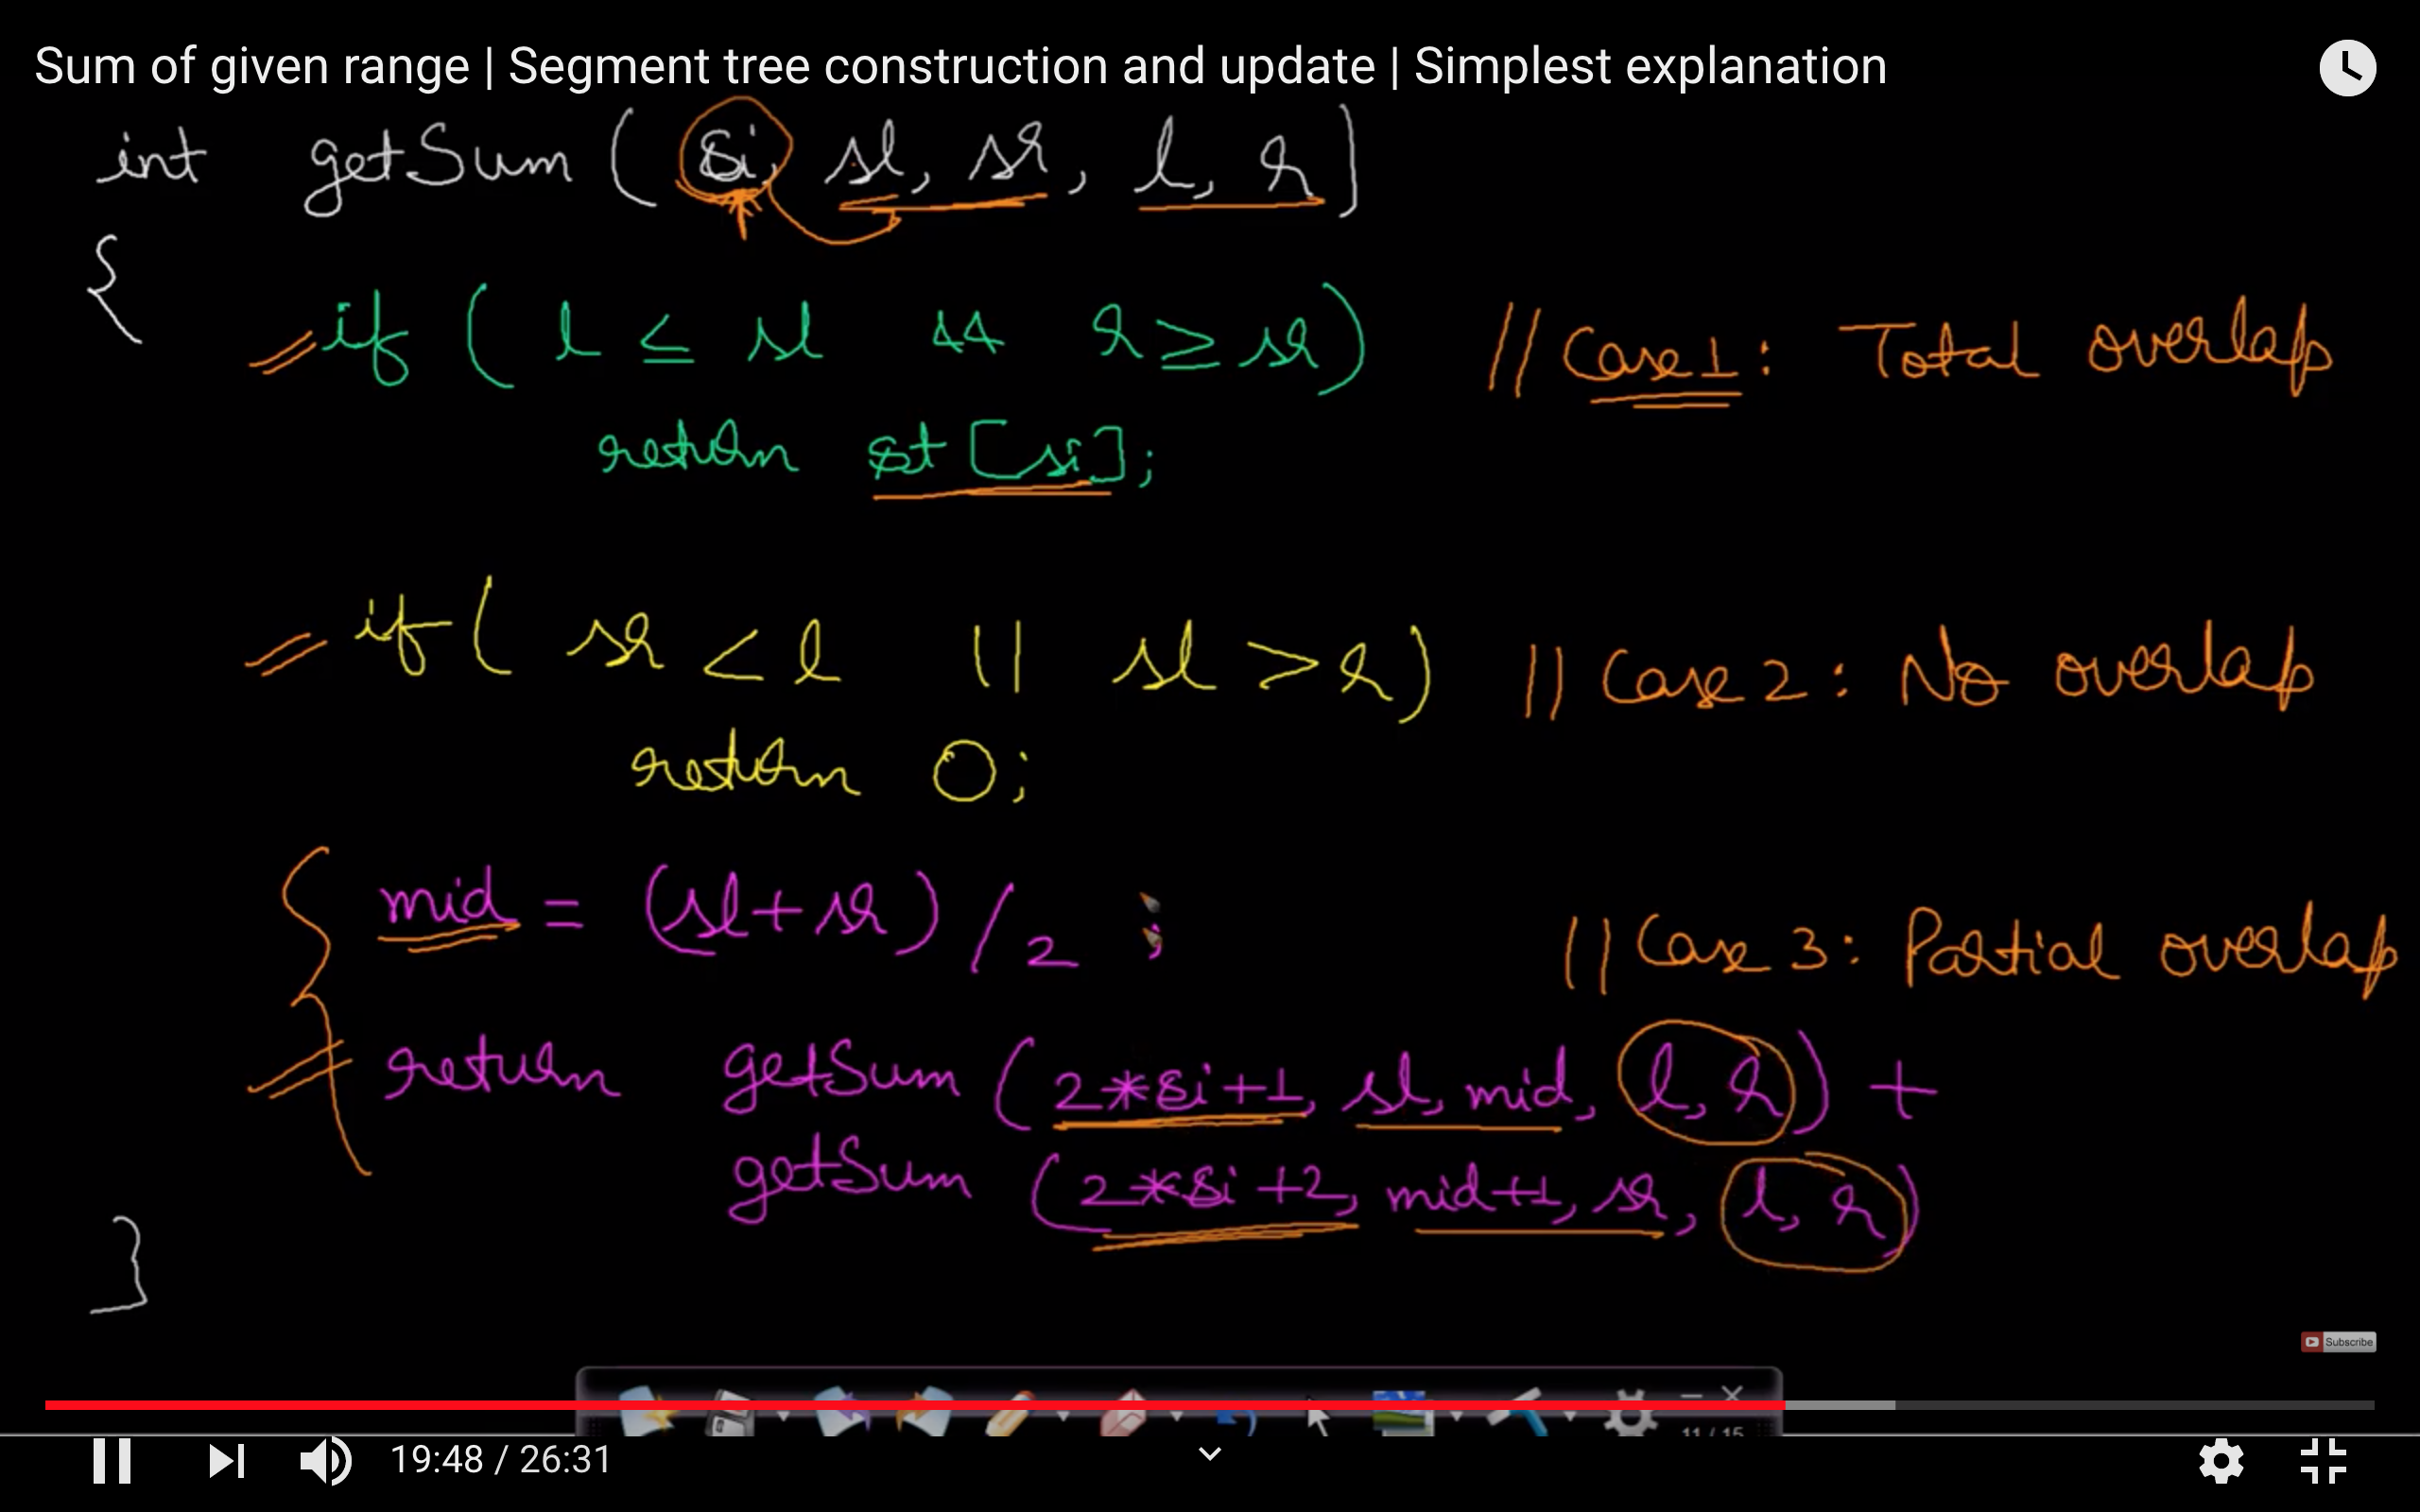 Sum of given range | Segment tree construction and update | Simplest explanation
int getSum ( si, sl, sr, l, r )
{
if ( l ≤ sl && r ≥ sr ) // Case 1: Total overlap
return st [si];
if ( sr < l || sl > r ) // Case 2: No overlap
return 0;
mid = (sl+sr) / 2 ; // Case 3: Partial overlap
return getSum ( 2*si+1, sl, mid, l, r ) +
getSum ( 2*si+2, mid+1, sr, l, r )
}
Subscribe
11 / 15
19:48 / 26:31